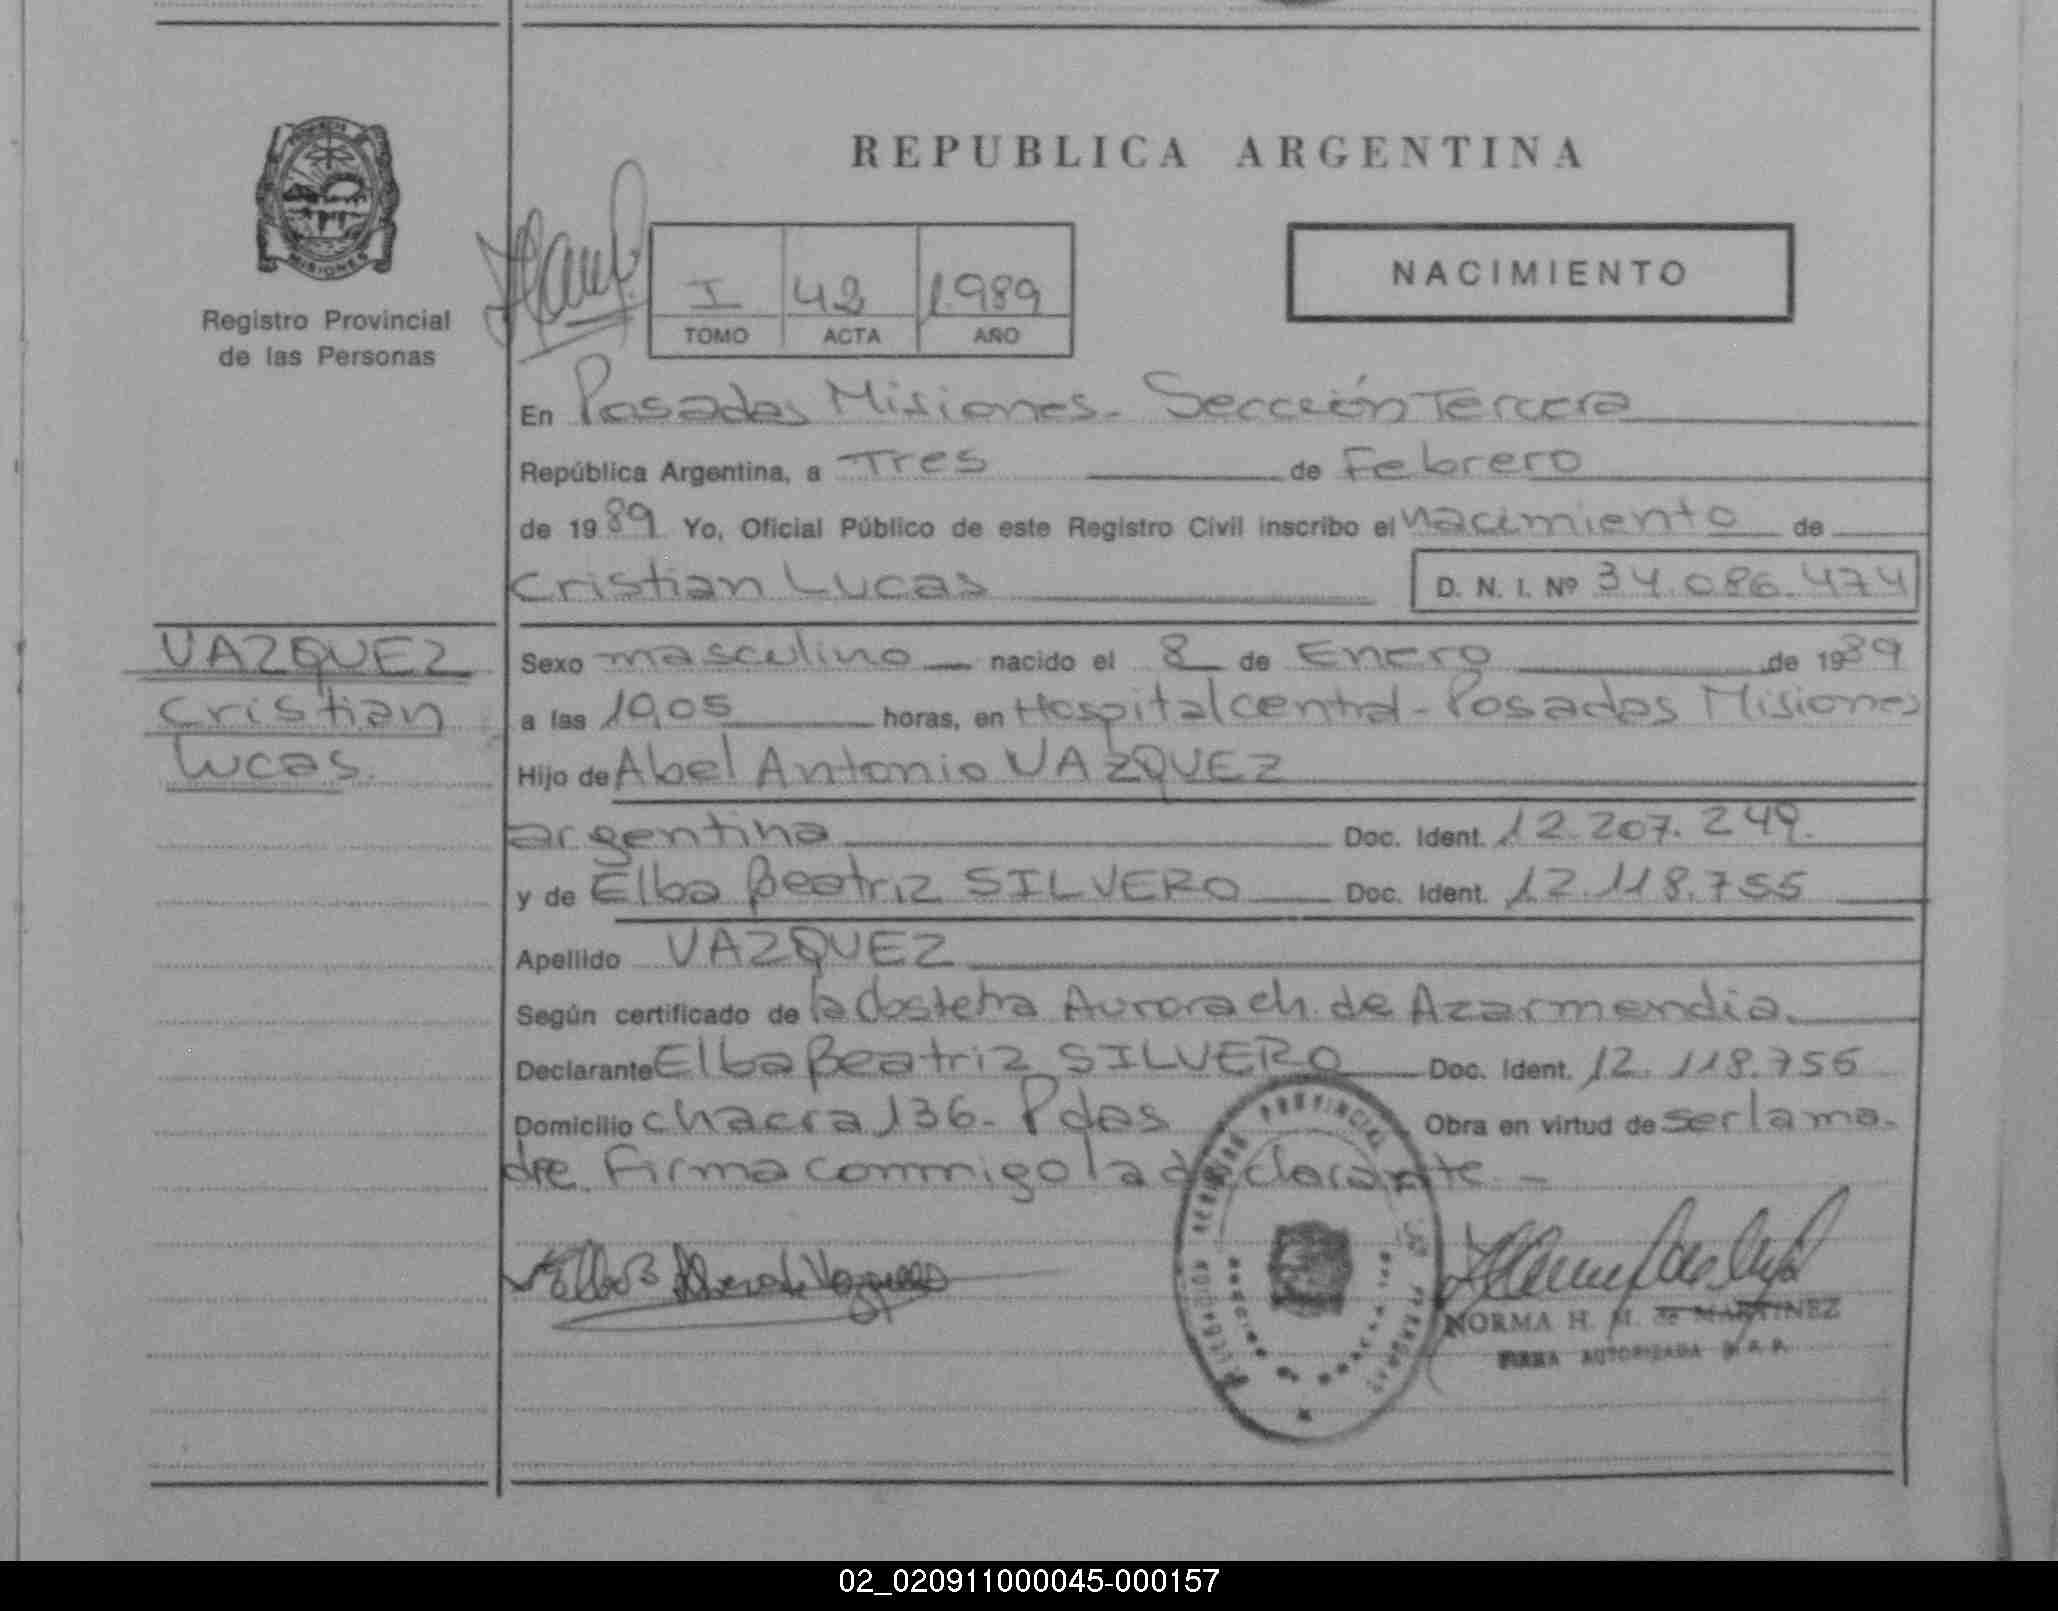 REPUBLICA ARGENTINA
MISIONES
Registro Provincial
de las Personas
I 42 1.989
TOMO ACTA AÑO
NACIMIENTO
En Posadas Misiones - Sección Tercera
República Argentina, a Tres de Febrero
de 1989 Yo, Oficial Público de este Registro Civil inscribo el nacimiento de
Cristian Lucas D. N. I. Nº 34.086.474
VAZQUEZ
Cristian
Lucas.
Sexo masculino nacido el 8 de Enero de 1989
a las 19,05 horas, en Hospital central - Posadas Misiones
Hijo de Abel Antonio VAZQUEZ
argentina Doc. Ident. 12.207.249.
y de Elba Beatriz SILVERO Doc. Ident. 12.118.755
Apellido VAZQUEZ
Según certificado de la Obstetra Aurora ch. de Azarmendia.
Declarante Elba Beatriz SILVERO Doc. Ident. 12.118.756
Domicilio chacra 136 - Pdas Obra en virtud de ser la ma-
dre. Firma conmigo la declarante. -
NORMA H. M. de MARTINEZ
FIRMA AUTORIZADA R. P. P.
02_020911000045-000157